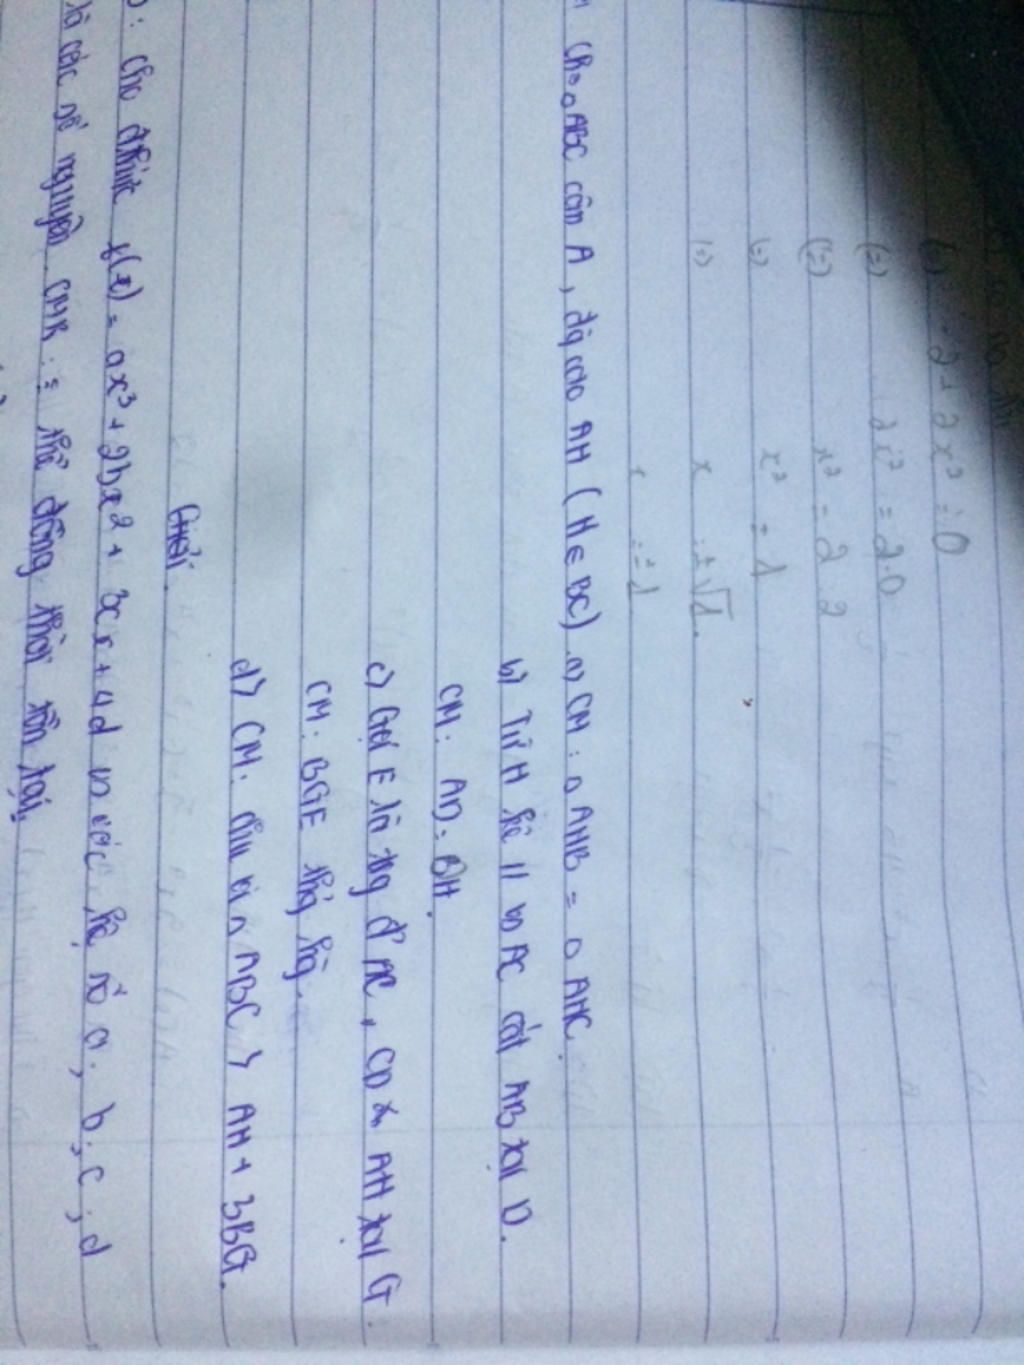 (=) -2 + 2x² = 0
(=) 2x² = 2.0
(=) x² = 2 2
(=) x² = 1
(=) x = ±√1.
x = ±1
Cho △ABC cân A, đg cao AH (H ∈ BC) a) CM: △AHB = △AHC.
b) Từ H kẻ // vs AC cắt AB tại D.
CM: AD = DH.
c) Gọi E là tđg đ' AC, CD x AH tại G.
CM: BGE thg hàg.
d) CM: chu vi △ABC > AH + 3BG.
Giải.
: cho đthức f(x) = ax³ + 2bx² + 3cx + 4d vs các hệ số a; b; c; d
là các số nguyên. CMR: thể đồng thời tồn tại